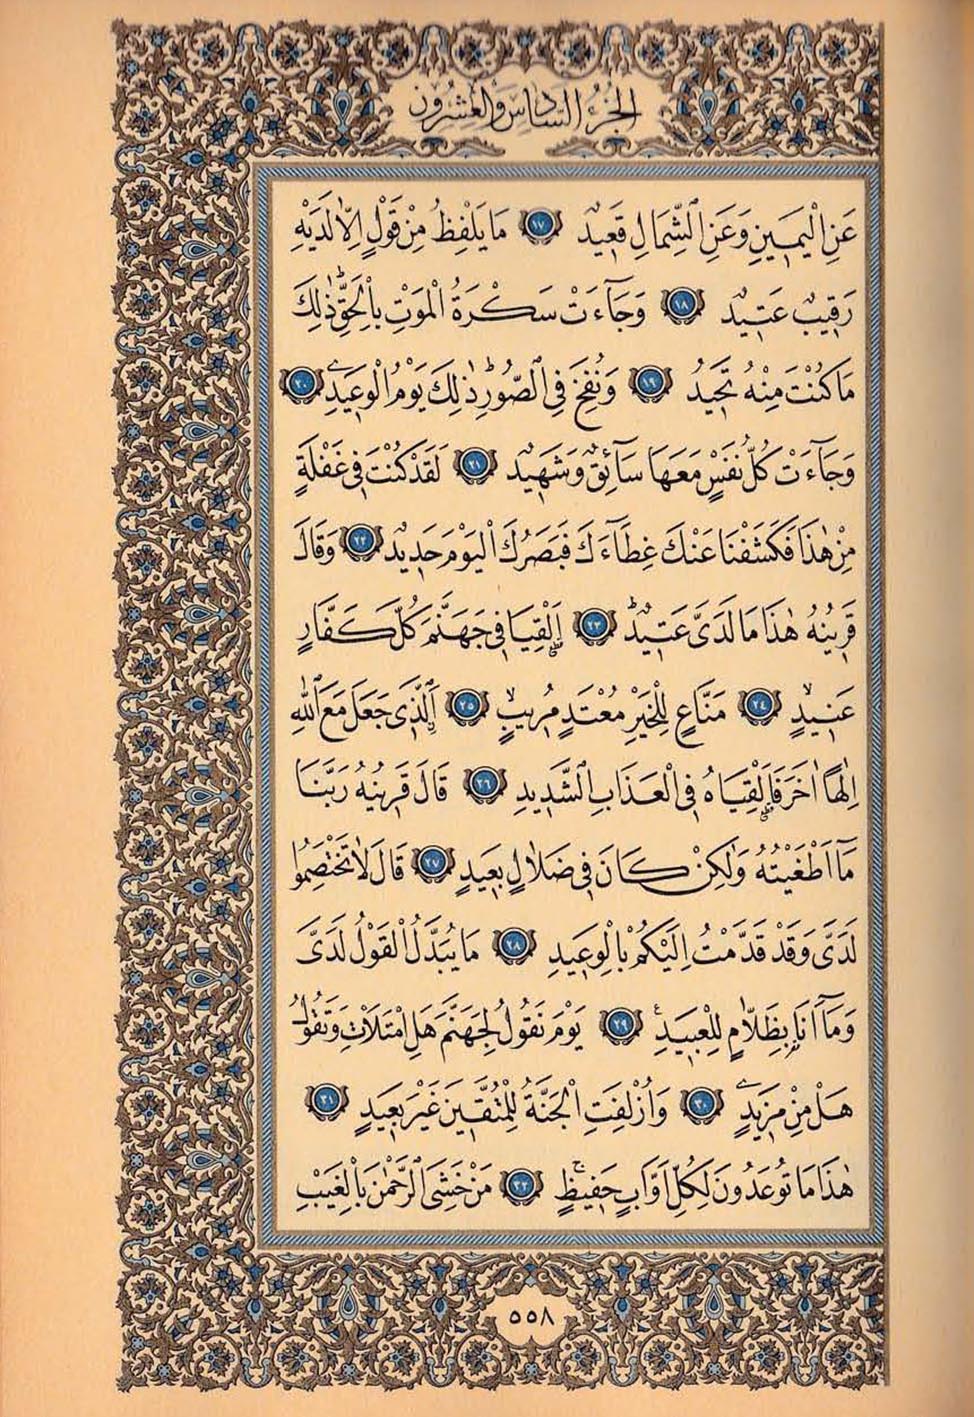 الجزء السادس والعشرون
عَنِ الْيَمِينِ وَعَنِ الشِّمَالِ قَعِيدٌ ١٧ مَا يَلْفِظُ مِنْ قَوْلٍ اِلَّا لَدَيْهِ
رَقِيبٌ عَتِيدٌ ١٨ وَجَٓاءَتْ سَكْرَةُ الْمَوْتِ بِالْحَقِّۜ ذٰلِكَ
مَا كُنْتَ مِنْهُ تَحِيدُ ١٩ وَنُفِخَ فِي الصُّورِۜ ذٰلِكَ يَوْمُ الْوَعِيدِ ٢٠
وَجَٓاءَتْ كُلُّ نَفْسٍ مَعَهَا سَٓائِقٌ وَشَهِيدٌ ٢١ لَقَدْ كُنْتَ فِي غَفْلَةٍ
مِنْ هٰذَا فَكَشَفْنَا عَنْكَ غِطَٓاءَكَ فَبَصَرُكَ الْيَوْمَ حَدِيدٌ ٢٢ وَقَالَ
قَرِينُهُ هٰذَا مَا لَدَيَّ عَتِيدٌۜ ٢٣ اَلْقِيَا فِي جَهَنَّمَ كُلَّ كَفَّارٍ
عَنِيدٍۙ ٢٤ مَنَّاعٍ لِلْخَيْرِ مُعْتَدٍ مُرِيبٍۙ ٢٥ اَلَّذِي جَعَلَ مَعَ اللّٰهِ
اِلٰهًا اٰخَرَ فَاَلْقِيَاهُ فِي الْعَذَابِ الشَّدِيدِ ٢٦ قَالَ قَرِينُهُ رَبَّنَا
مَٓا اَطْغَيْتُهُ وَلٰكِنْ كَانَ فِي ضَلَالٍ بَعِيدٍ ٢٧ قَالَ لَا تَخْتَصِمُوا
لَدَيَّ وَقَدْ قَدَّمْتُ اِلَيْكُمْ بِالْوَعِيدِ ٢٨ مَا يُبَدَّلُ الْقَوْلُ لَدَيَّ
وَمَٓا اَنَا بِظَلَّامٍ لِلْعَبِيدِ۟ ٢٩ يَوْمَ نَقُولُ لِجَهَنَّمَ هَلِ امْتَلَأْتِ وَتَقُولُ
هَلْ مِنْ مَزِيدٍ ٣٠ وَاُزْلِفَتِ الْجَنَّةُ لِلْمُتَّقِينَ غَيْرَ بَعِيدٍ ٣١
هٰذَا مَا تُوعَدُونَ لِكُلِّ اَوَّابٍ حَفِيظٍۚ ٣٢ مَنْ خَشِيَ الرَّحْمٰنَ بِالْغَيْبِ
٥٥٨